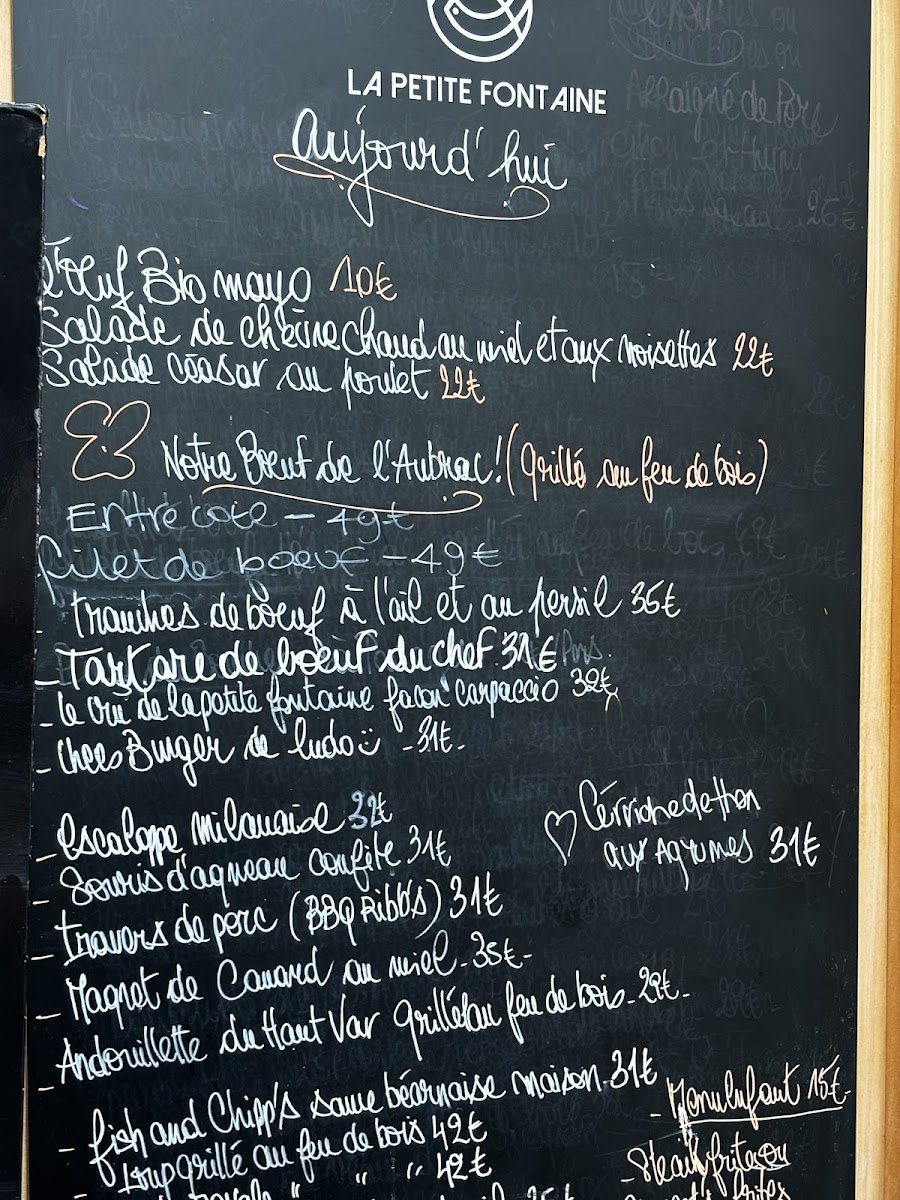 LA PETITE FONTAINE
aujourd'hui
l'œuf Bio mayo 10€
Salade de chèvre chaud au miel et aux noisettes 22€
Salade céasar au poulet 22€
Notre Bœuf de l'Aubrac! (grillé au feu de bois)
Entrecote - 49€
filet de boeuf - 49€
- tranches de boeuf à l'ail et au persil 35€
- Tartare de bœuf du chef 31€
- le cru de la petite fontaine façon carpaccio 32€
- chees Burger de ludo - 31€ -
- escaloppe milanaise 32€
- Souris d'agneau confite 31€
♡ Cérviche de thon
aux agrumes 31€
- travers de porc (BBQ Ribb's) 31€
- Magret de Canard au miel - 35€ -
- Andouillette du Haut Var grillé au feu de bois - 29€ -
- fish and Chipp's sauce béarnaise maison - 31€
- Loup grillé au feu de bois 42€
royale " " " 42€
- Menu enfant 15€ -
Steack frites ou